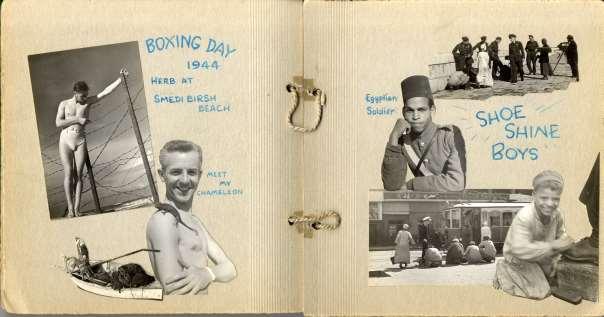 BOXING DAY
1944
HERB AT
SMEDI BIRSH
BEACH
MEET
MY
CHAMELEON
Egyptian
Soldier
SHOE
SHINE
BOYS